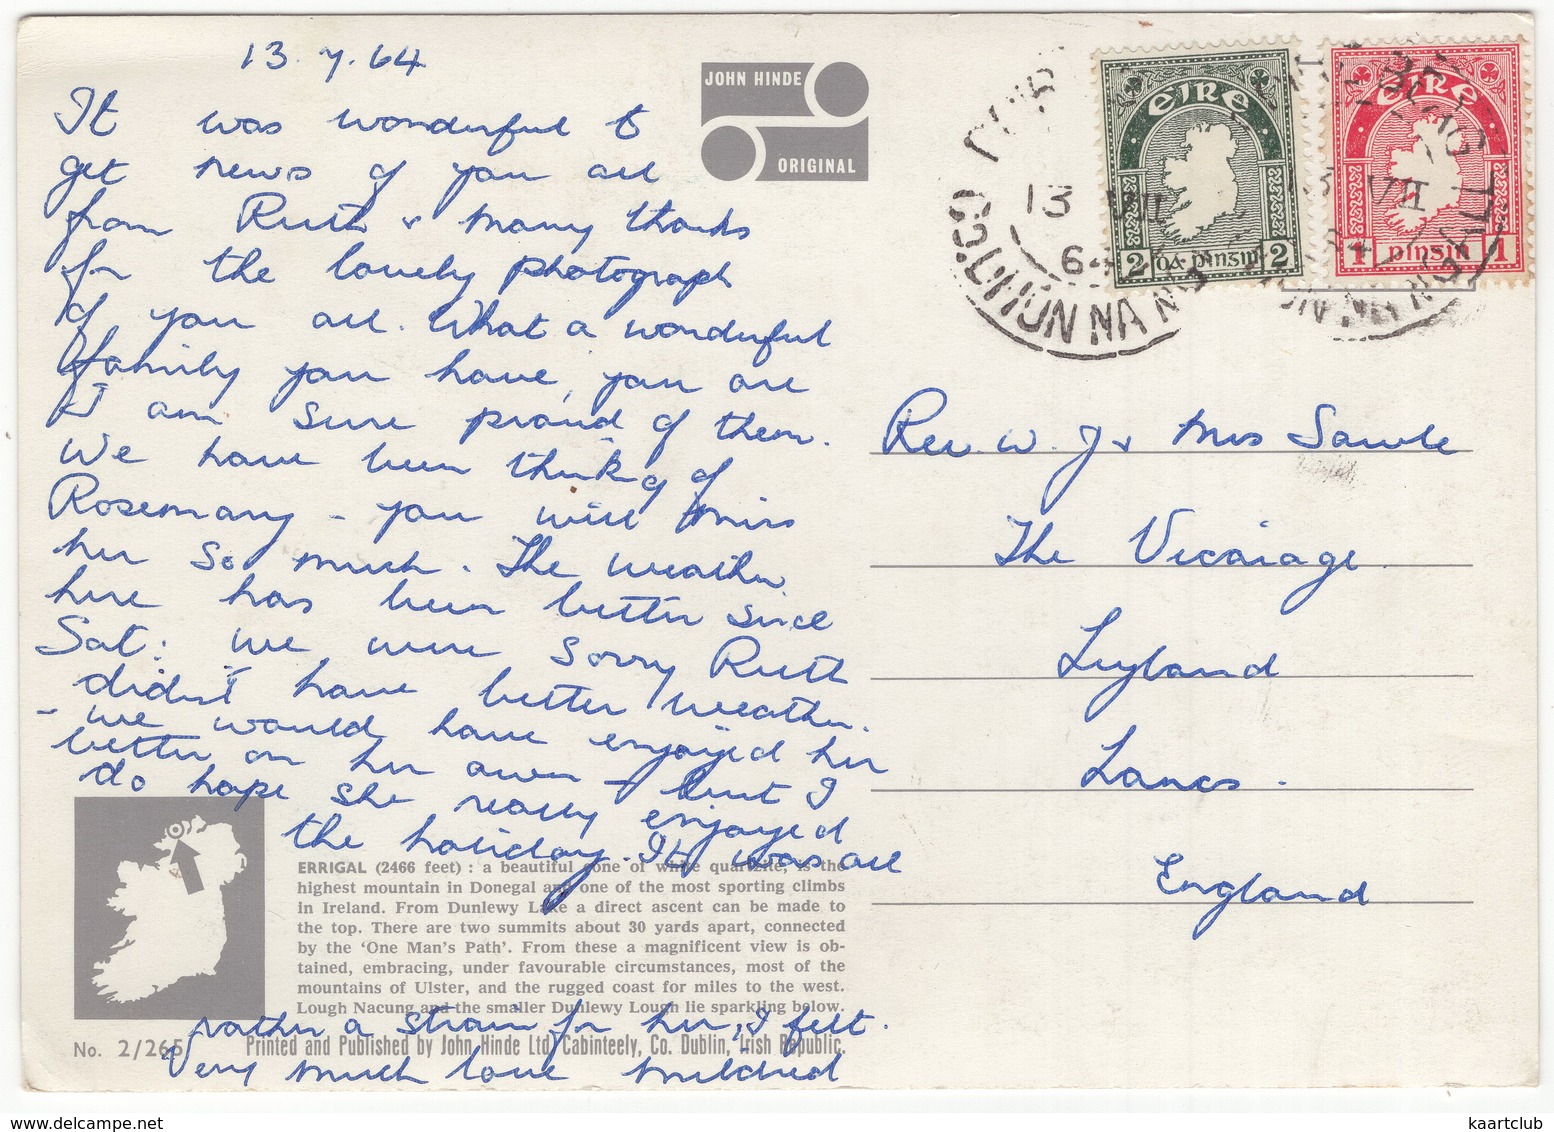 13.7.64
It was wonderful to
get news of you all
from Ruth & many thanks
for the lovely photograph
of you all. What a wonderful
family you have, you are
I am sure proud of them.
We have been thinking of
Rosemary - you will miss
her so much. The weather
here has been better since
Sat: we were sorry Ruth
didn't have better weather.
- we would have enjoyed her
better on her own - but I
do hope she really enjoyed
the holiday. It was all
rather a strain for her, I felt.
Very much love Mildred
JOHN HINDE
ORIGINAL
ERRIGAL (2466 feet) : a beautiful cone of white quartzite, is the
highest mountain in Donegal and one of the most sporting climbs
in Ireland. From Dunlewy Lake a direct ascent can be made to
the top. There are two summits about 30 yards apart, connected
by the 'One Man's Path'. From these a magnificent view is ob-
tained, embracing, under favourable circumstances, most of the
mountains of Ulster, and the rugged coast for miles to the west.
Lough Nacung and the smaller Dunlewy Lough lie sparkling below.
No. 2/265
Printed and Published by John Hinde Ltd., Cabinteely, Co. Dublin, Irish Republic.
éire
2 dá pinsin 2
éire
1 pinsin 1
13 VII
64
CO. DHÚN NA NGALL
VII
Rev. W. J & Mrs Sawle
The Vicarage
Leyland
Lancs.
England
kaartclub